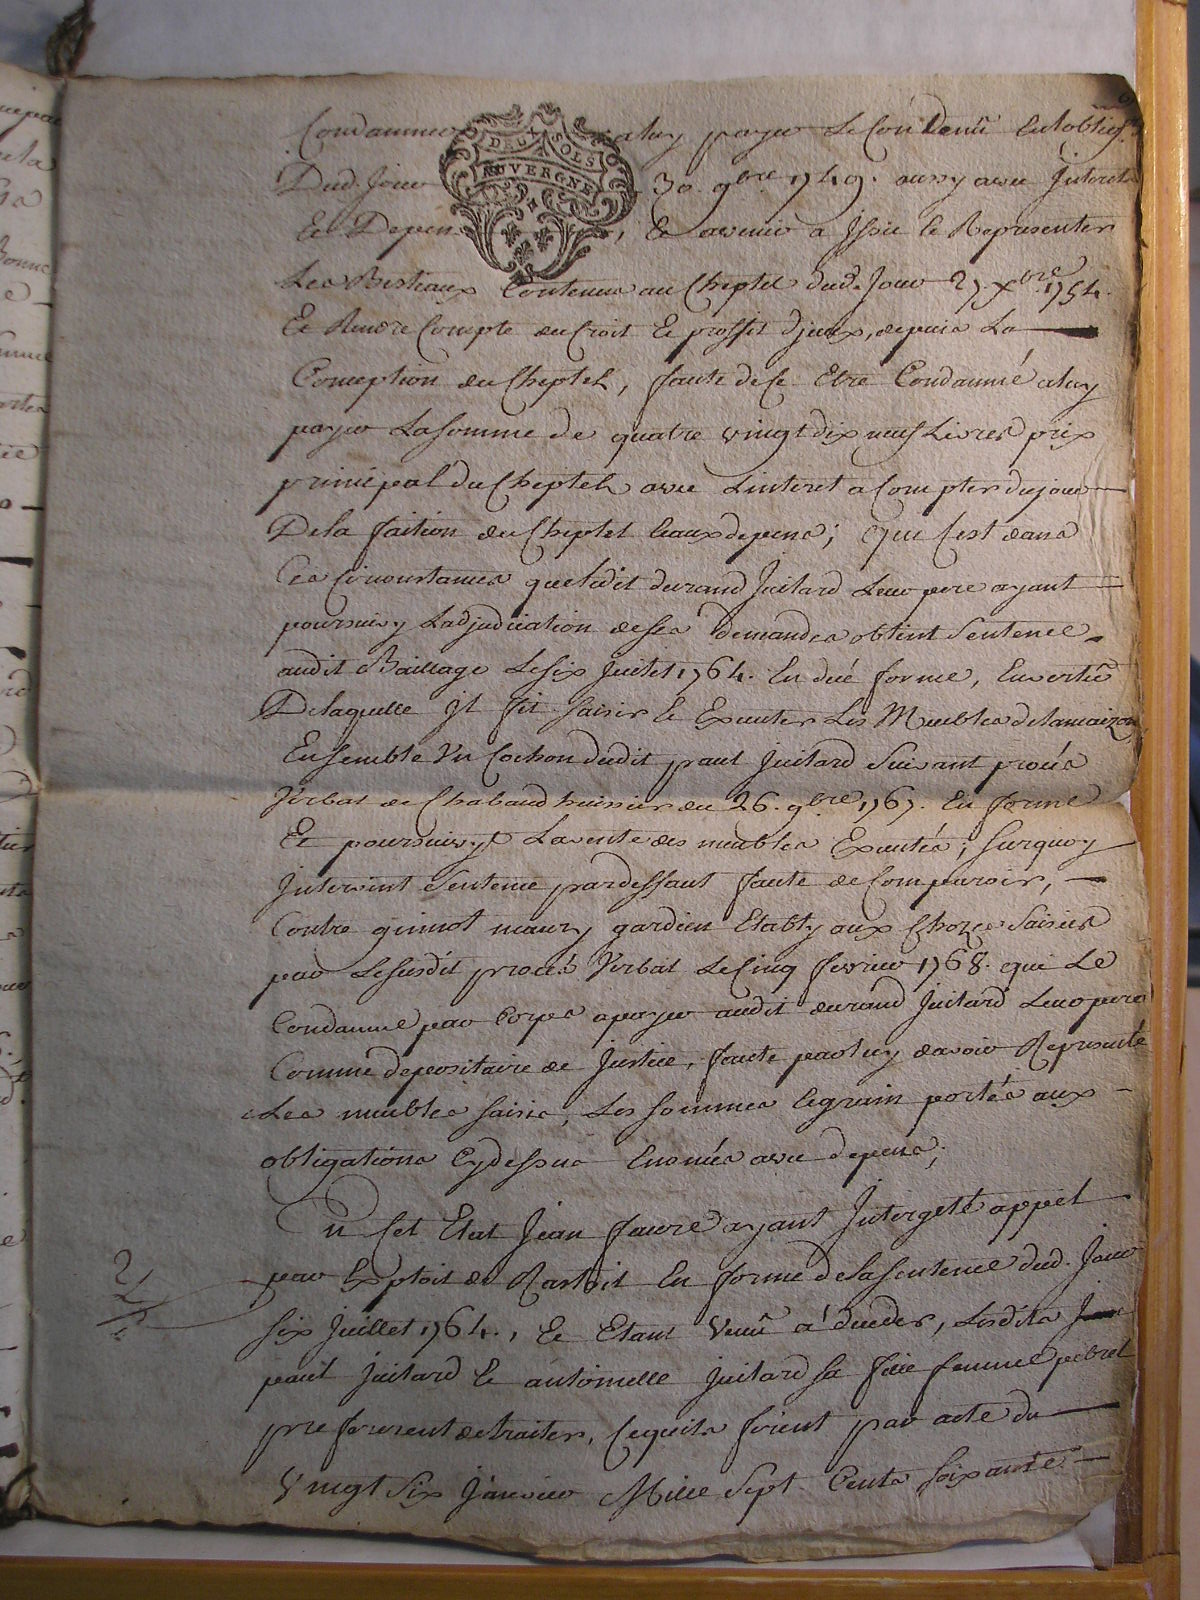 Condamner aluy payer le Contenu en lobligon
Dud. Jour 30. 9bre 1749. aussy avec Interets
Et Depens, Et avenir a Issie le Representer
Les Bestiaux Contenus au Cheptel dud. Jour 27. Xbre 1754.
Et Rendre Compte du Croit Et proffit d'jceux, depuis La
Conception du Cheptel, faute de Ce Etre Condamné aluy
payer La Somme de quatre vingt dix neuf Livres prix
principal du Cheptel avec Linteret a Compter dujour
De la faition du Cheptel Eaux depens; Que C'est dans
Ces Circonstances queledit durand Juilard Leur pere ayant
poursuivy Ladjudication de ses demandes obtint Sentence
audit Bailliage Le six Juillet 1764. En düé forme, En vertu
De laquelle Jl fit Saisir Et Executer Les Meubles de lamaizon
Ensemble Un Cochon dudit paul Juilard Suivant procés
Verbal de Chabaud huissier du 26. 9bre 1767. En forme
Et poursuivyt La vente des meubles Executés; Surquoy
Jntervint Sentence par deffaut faute de Comparoir,
Contre ginnot maury gardien Etably aux Chozes Saisies
par Le susdit procés Verbal Le Cinq fevrier 1768. qui Le
Condamne par Corps apayer audit durand Juilard Leur pere
Comme depositaire de Justice, faute par luy davoir Representé
Les meubles saisis, Les sommes Et grain portés aux
obligations Cydessus Enoncées avec depens;
En Cet Etat Jean faure ayant Jntergeté appel
par Exploit de Rastoit En forme de la Sentence dud. Jour
six Juillet 1764., Et Etant Venu a déceder, Lesdits
paul Juilard Et antoinette Juilard Sa fille femme pebrel
prefererent de traiter, Cequils firent par acte du
Vingt Six Janvier Mille Sept Cents soixante
DEUX SOLS
AUVERGNE